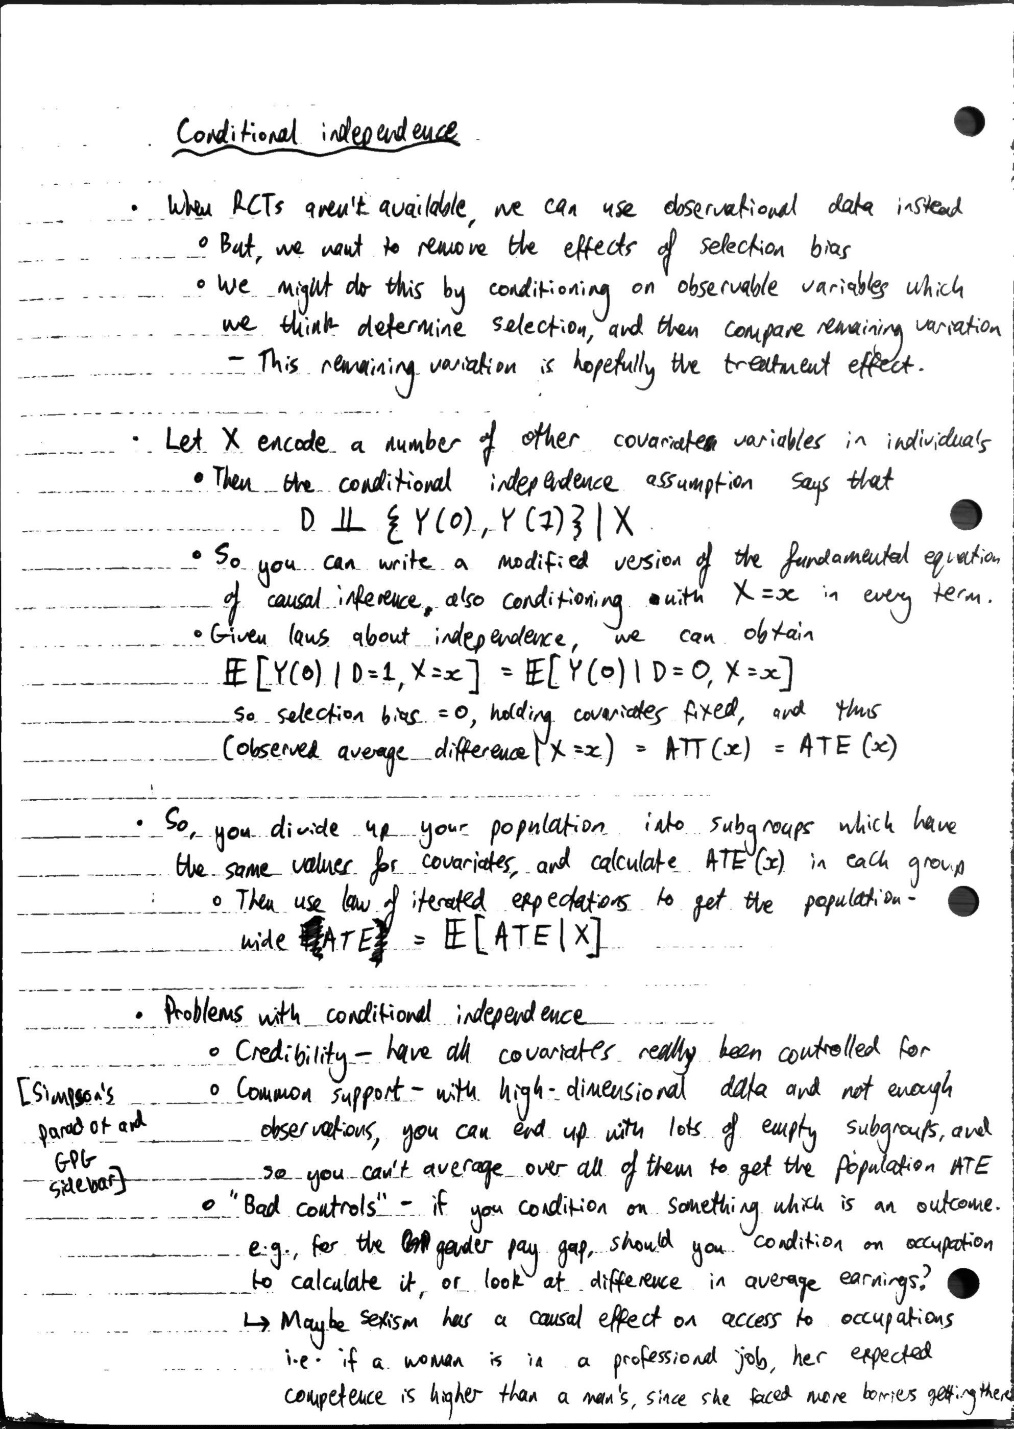 Conditional independence
• When RCTs aren't available, we can use observational data instead
o But, we want to remove the effects of selection bias
o We might do this by conditioning on observable variables which
we think determine selection, and then compare remaining variation
– This remaining variation is hopefully the treatment effect.
• Let X encode a number of other covariate variables in individuals
• Then the conditional independence assumption says that
D ⫫ {Y(0), Y(1)} | X
• So you can write a modified version of the fundamental equation
of causal inference, also conditioning with X=x in every term.
• Given laws about independence, we can obtain
𝔼[Y(0) | D=1, X=x] = 𝔼[Y(0) | D=0, X=x]
so selection bias = 0, holding covariates fixed, and thus
(observed average difference | X=x) = ATT(x) = ATE(x)
• So, you divide up your population into subgroups which have
the same values for covariates, and calculate ATE(x) in each group
o Then use law of iterated expectations to get the population-
wide ATE = 𝔼[ATE|X]
• Problems with conditional independence
o Credibility – have all covariates really been controlled for
o Common support – with high-dimensional data and not enough
observations, you can end up with lots of empty subgroups, and
so you can't average over all of them to get the population ATE
[Simpson's
paradox and
GPG
sidebar]
o "Bad controls" – if you condition on something which is an outcome.
e.g., for the gender pay gap, should you condition on occupation
to calculate it, or look at difference in average earnings?
↳ Maybe sexism has a causal effect on access to occupations
i.e. if a woman is in a professional job, her expected
competence is higher than a man's, since she faced more barriers getting there